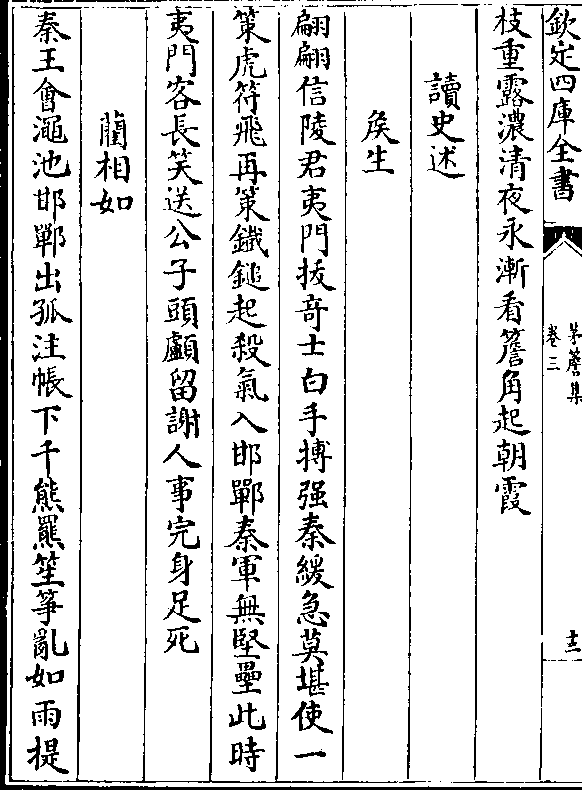 欽定四庫全書
茅簷集
卷三
十二
枝重露濃清夜永漸看簷角起朝霞
讀史述
矦生
翩翩信陵君夷門拔奇士白手搏强秦緩急莫堪使一
策虎符飛再策鐵鎚起殺氣入邯鄲秦軍無堅壘此時
夷門客長笑送公子頭顱留謝人事完身足死
藺相如
秦王會澠池邯鄲出孤注帳下千熊羆笙箏亂如雨提